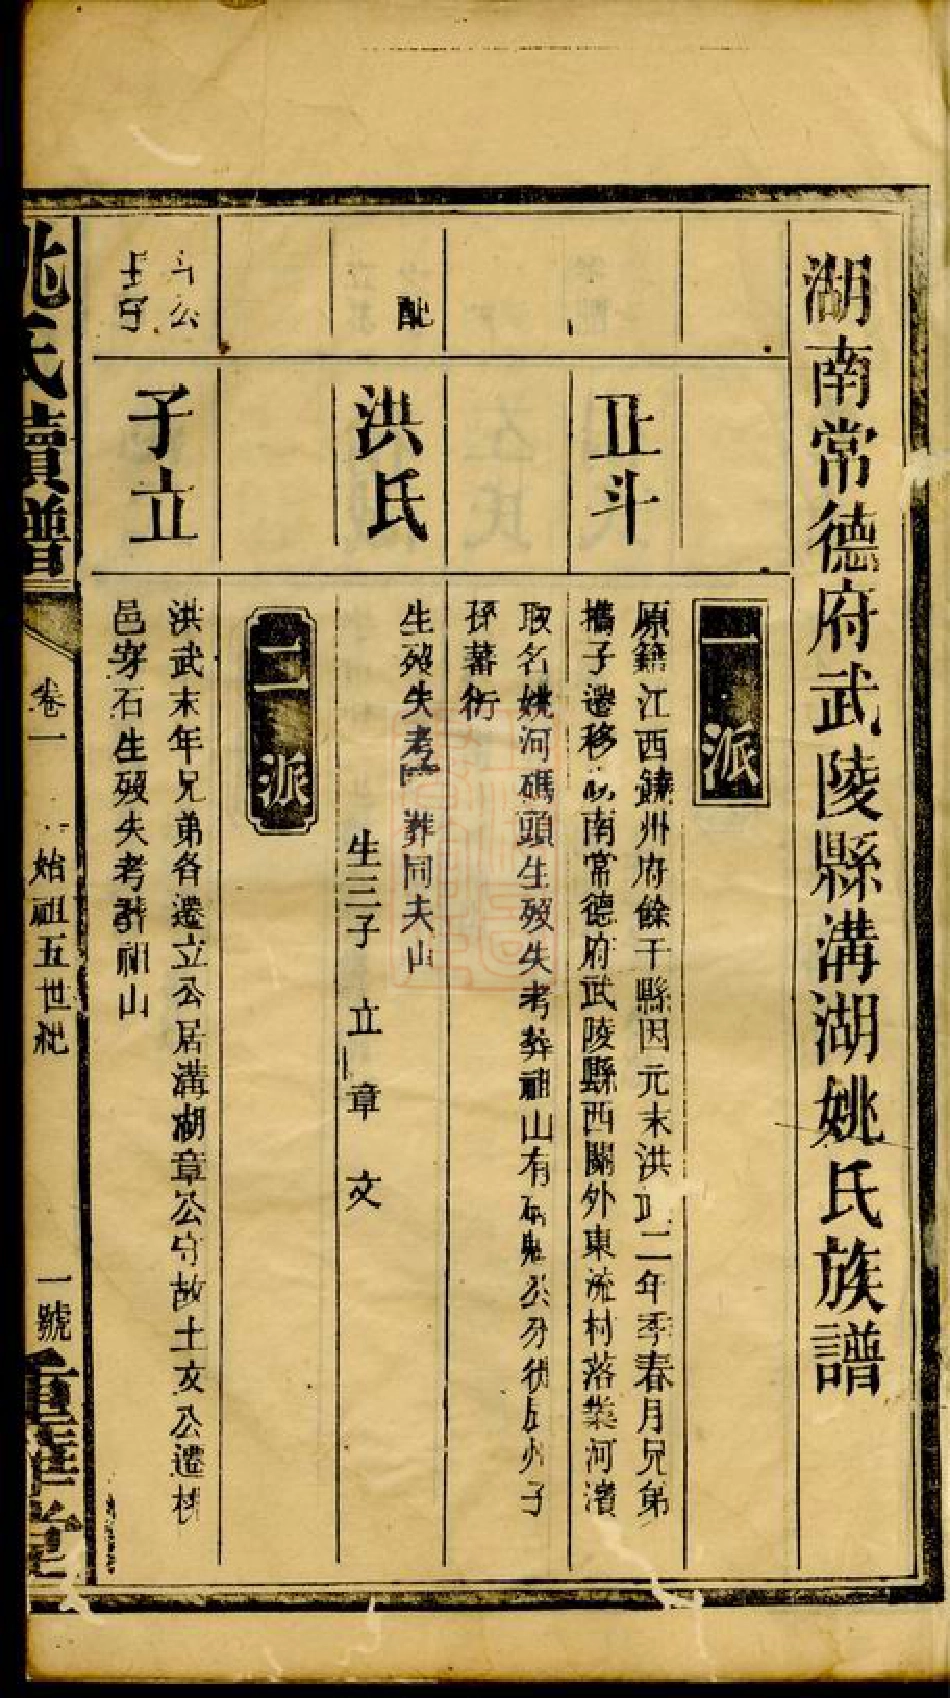 湖南常德府武陵縣溝湖姚氏族譜
一派
正斗
原籍江西饒州府餘干縣因元末洪武二年季春月兄弟
攜子遷移湖南常德府武陵縣西關外東流村落業河濱
取名姚河碼頭生歿失考葬祖山有石魁公分徙 州子
孫蕃衍
配
洪氏
生歿失考葬同夫山
生三子 立 章 文
二派
斗公
長子
子立
洪武末年兄弟各遷立公居溝湖章公守故土文公遷桃
邑穿石生歿失考葬祖山
姚氏續譜
卷一
始祖五世紀
一號
重華堂